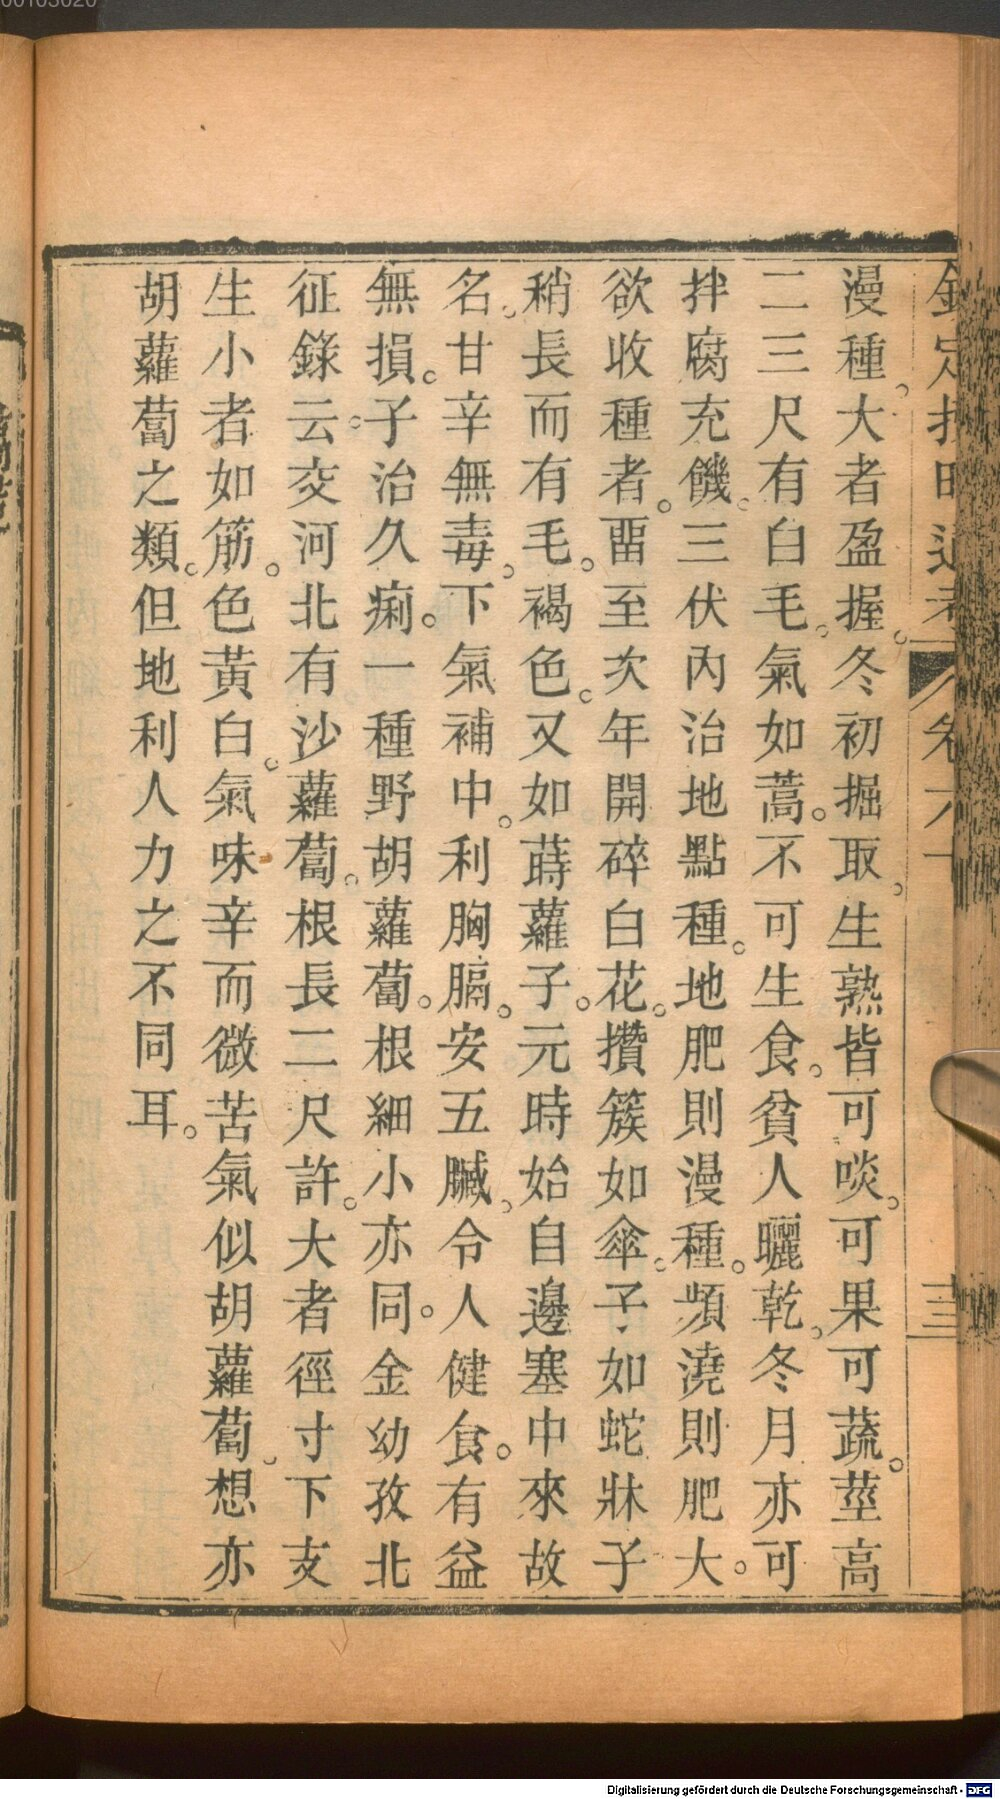 欽定授時通考 卷六十 十三
漫種。大者盈握。冬初掘取。生熟皆可啖。可果可蔬。莖高
二三尺有白毛。氣如蒿。不可生食。貧人曬乾。冬月亦可
拌腐充饑。三伏內治地點種。地肥則漫種。頻澆則肥大。
欲收種者。畱至次年開碎白花。攢簇如傘。子如蛇牀子
稍長而有毛。褐色。又如蒔蘿子。元時始自邊塞中來故
名。甘辛無毒。下氣補中。利胸膈。安五臟。令人健食。有益
無損。子治久痢。一種野胡蘿蔔。根細小亦同。金幼孜北
征錄云。交河北有沙蘿蔔。根長二尺許。大者徑寸下支
生小者如筋。色黃白。氣味辛而微苦氣似胡蘿蔔。想亦
胡蘿蔔之類。但地利人力之不同耳。
Digitalisierung gefördert durch die Deutsche Forschungsgemeinschaft - DFG